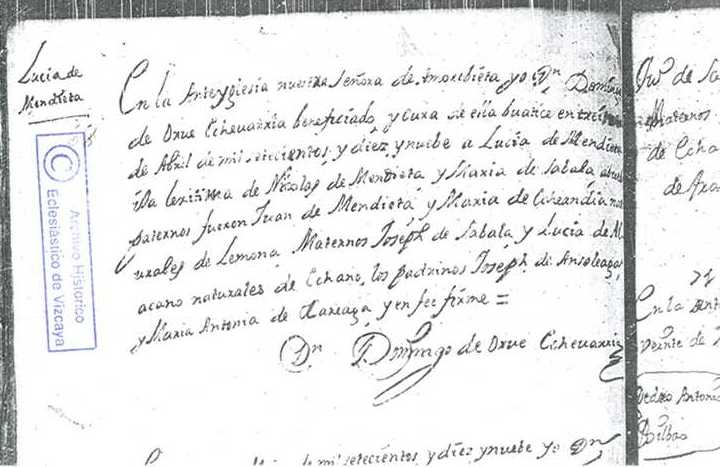 Lucia de
Mendieta
En la Anteyglesia nuestra Señora de Amoribieta yo Dn. Domingo
de Orue Echeuarria beneficiado y Cura de ella bautice en treinta
de Abril de mil setecientos y diez y nuebe a Lucia de Mendieta
ija lexitima de Nicolas de Mendieta y Maria de Sabala abuelos
paternos fueron Juan de Mendieta y Maria de Echeandia na
urales de Lemona Maternos Joseph de Sabala y Lucia de
acano naturales de Echano, los padrinos Joseph de Ansoleaga
y Maria Antonia de Larreaga y en fee firme =
Dn. Domingo de Orue Echeuarria
de mil setecientos y diez y nuebe yo Dn
Archivo Historico
Eclesiástico de Vizcaya
©
de
Maternos
de Echa
de
En la Ant
Veinte de
Pedro Antonio
Bilbao